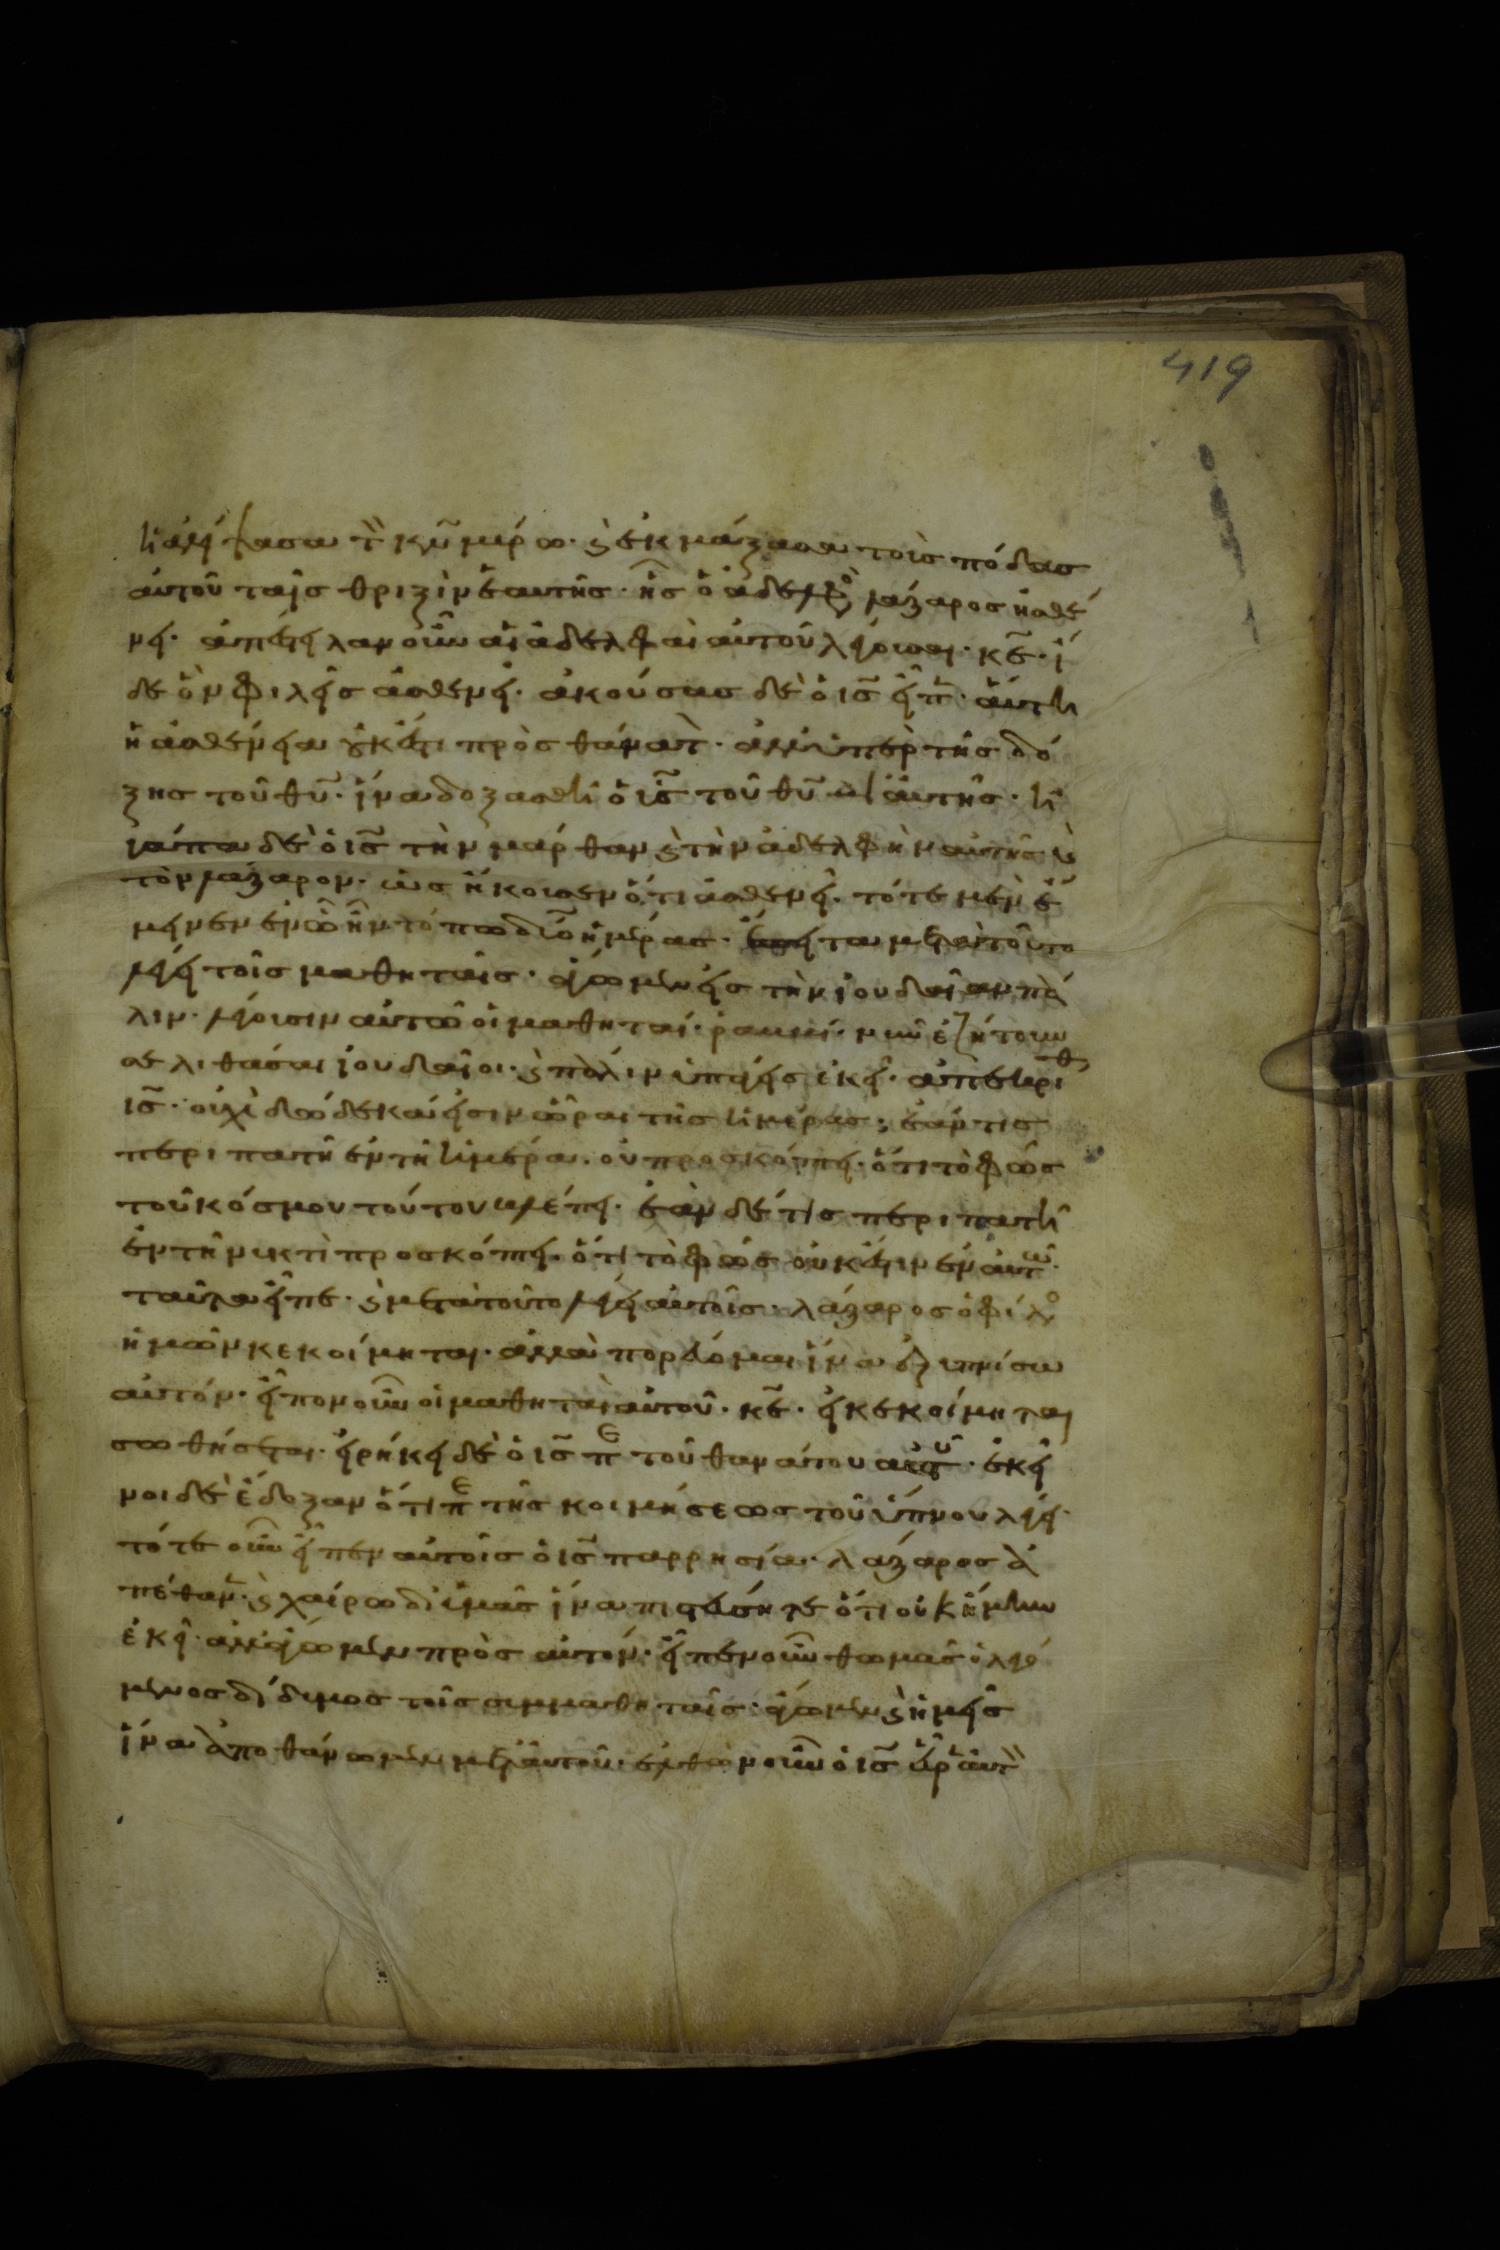 419
ἡ ἀλείψασα τὸν κν̅ μύρω· καὶ ἐκμάξασα τοὺς πόδας
αὐτοῦ ταῖς θριξὶν ἑαυτῆς· ἧς ὁ ἀδελφὸς λάζαρος ἠσθέ
νει· ἀπέστειλαν οὖν αἱ ἀδελφαὶ αὐτοῦ λέγουσαι· κε̅· ἴ
δε ὃν φιλεῖς ἀσθενεῖ· ἀκούσας δὲ ὁ ις̅ εἶπεν· αὕτη
ἡ ἀσθένεια οὐκ ἔστι πρὸς θάνατον· ἀλλ' ὑπὲρ τῆς δό
ξης τοῦ θυ̅· ἵνα δοξασθῆ ὁ υἱς̅ τοῦ θυ̅ δι' αὐτῆς· ἠ
γάπα δὲ ὁ ις̅ τὴν μάρθαν καὶ τὴν ἀδελφὴν αὐτῆς καὶ
τὸν λάζαρον· ὡς ἤκουσεν ὅτι ἀσθενεῖ· τότε μὲν ἔ
μεινεν ἐν ὧ ἦν τόπω δύο ἡμέρας· ἔπειτα μετὰ τοῦτο
λέγει τοῖς μαθηταῖς· ἄγωμεν εἰς τὴν ἰουδαίαν πά
λιν· λέγουσιν αὐτῶ οἱ μαθηταί· ραββί· νῦν ἐζήτουν
σε λιθάσαι ἰουδαῖοι· καὶ πάλιν ὑπάγεις ἐκεῖ· ἀπεκρίθ
ις̅· οὐχὶ δώδεκα εἰσιν ὧραι τῆς ἡμέρας; ἐάν τις
περιπατῆ ἐν τῆ ἡμέρα· οὐ προσκόπτει· ὅτι τὸ φῶς
τοῦ κόσμου τούτου βλέπει· ἐὰν δέ τις περιπατῆ
ἐν τῆ νυκτὶ προσκόπτει· ὅτι τὸ φῶς οὐκ ἔστιν ἐν αὐτῶ·
ταῦτα εἶπε· καὶ μετὰ τοῦτο λέγει αὐτοῖς· λάζαρος ὁ φίλος
ἡμῶν κεκοίμηται· ἀλλὰ πορεύομαι ἵνα ἐξυπνίσω
αὐτόν· εἶπον οὖν οἱ μαθηταὶ αὐτοῦ· κε̅· εἰ κεκοίμηται
σωθήσεται· εἰρήκει δὲ ὁ ις̅ περὶ τοῦ θανάτου αὐτοῦ· ἐκεῖ
νοι δὲ ἔδοξαν ὅτι περὶ τῆς κοιμήσεως τοῦ ὕπνου λέγει·
τότε οὖν εἶπεν αὐτοῖς ὁ ις̅ παρρησία· λάζαρος ἀ
πέθανεν· καὶ χαίρω δι' ὑμᾶς ἵνα πιστεύσητε ὅτι οὐκ ἤμην
ἐκεῖ· ἀλλ' ἄγωμεν πρὸς αὐτόν· εἶπεν οὖν θωμᾶς ὁ λεγό
μενος δίδυμος τοῖς συμμαθηταῖς· ἄγωμεν καὶ ἡμεῖς
ἵνα ἀποθάνωμεν μετ' αὐτοῦ· ἐλθὼν οὖν ὁ ις̅ εὗρεν αὐτὸν